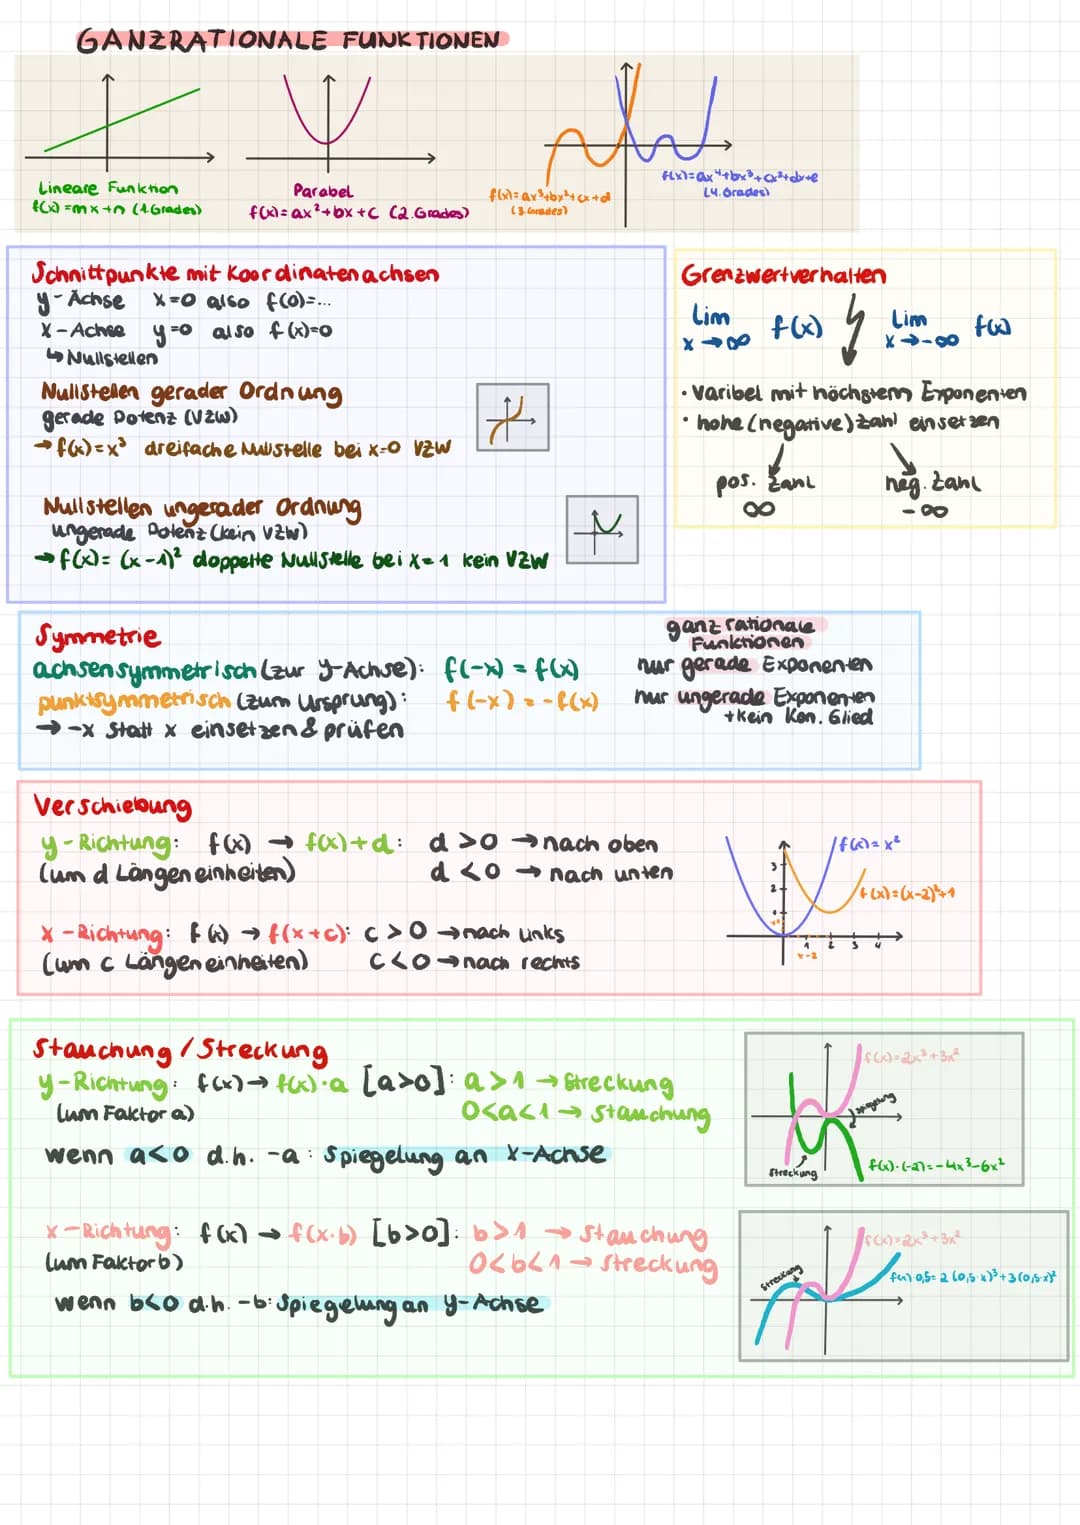 GANZRATIONALE FUNKTIONEN
Lineare Funktion
f(x)=mx+n (1.Grades)
Parabel
f(x)=ax²+bx+c (2.Grades)
f(x)=ax³+bx²+cx+d
(3.Grades)
f(x)=ax⁴+bx³+cx²+dx+e
(4.Grades)
Schnittpunkte mit Koordinatenachsen
y-Achse x=0 also f(0)=...
x-Achse y=0 also f(x)=0
↳ Nullstellen
Nullstellen gerader Ordnung
gerade Potenz (VZW)
→ f(x)=x³ dreifache Nullstelle bei x=0 VZW
Nullstellen ungerader Ordnung
ungerade Potenz (kein VZW)
→ f(x)= (x-1)² doppelte Nullstelle bei x=1 kein VZW
Grenzwertverhalten
Lim x→∞ f(x) Lim x→-∞ f(x)
• Varibel mit höchstem Exponenten
• hohe (negative) Zahl einsetzen
pos. Zahl neg. Zahl
∞ -∞
Symmetrie
ganzrationale
Funktionen
achsensymmetrisch (zur y-Achse): f(-x) = f(x) nur gerade Exponenten
punktsymmetrisch (zum Ursprung): f(-x) = -f(x) nur ungerade Exponenten
+kein Kon. Glied
→ -x statt x einsetzen & prüfen
Verschiebung
y-Richtung: f(x) → f(x)+d: d >0 → nach oben
(um d Längeneinheiten) d <0 → nach unten
x-Richtung: f(x) → f(x+c): c > 0 → nach links
(um c Längeneinheiten) c<0 → nach rechts
f(x)=x²
f(x)=(x-2)²+1
3
2
1
1 2 3 4
x-2
Stauchung / Streckung
y-Richtung: f(x) → f(x)·a [a>0]: a>1 → Streckung
(um Faktor a) 0<a<1 → Stauchung
wenn a<0 d.h. -a : Spiegelung an X-Achse
f(x)=2x³+3x²
Spiegelung
Streckung
f(x)·(-2)=-4x³-6x²
x-Richtung: f(x) → f(x·b) [b>0]: b>1 → Stauchung
(um Faktor b) 0<b<1 → Streckung
wenn b<0 d.h. -b: Spiegelung an y-Achse
f(x)=2x³+3x²
Streckung
f(x)·0,5=2(0,5·x)³+3(0,5·x)²